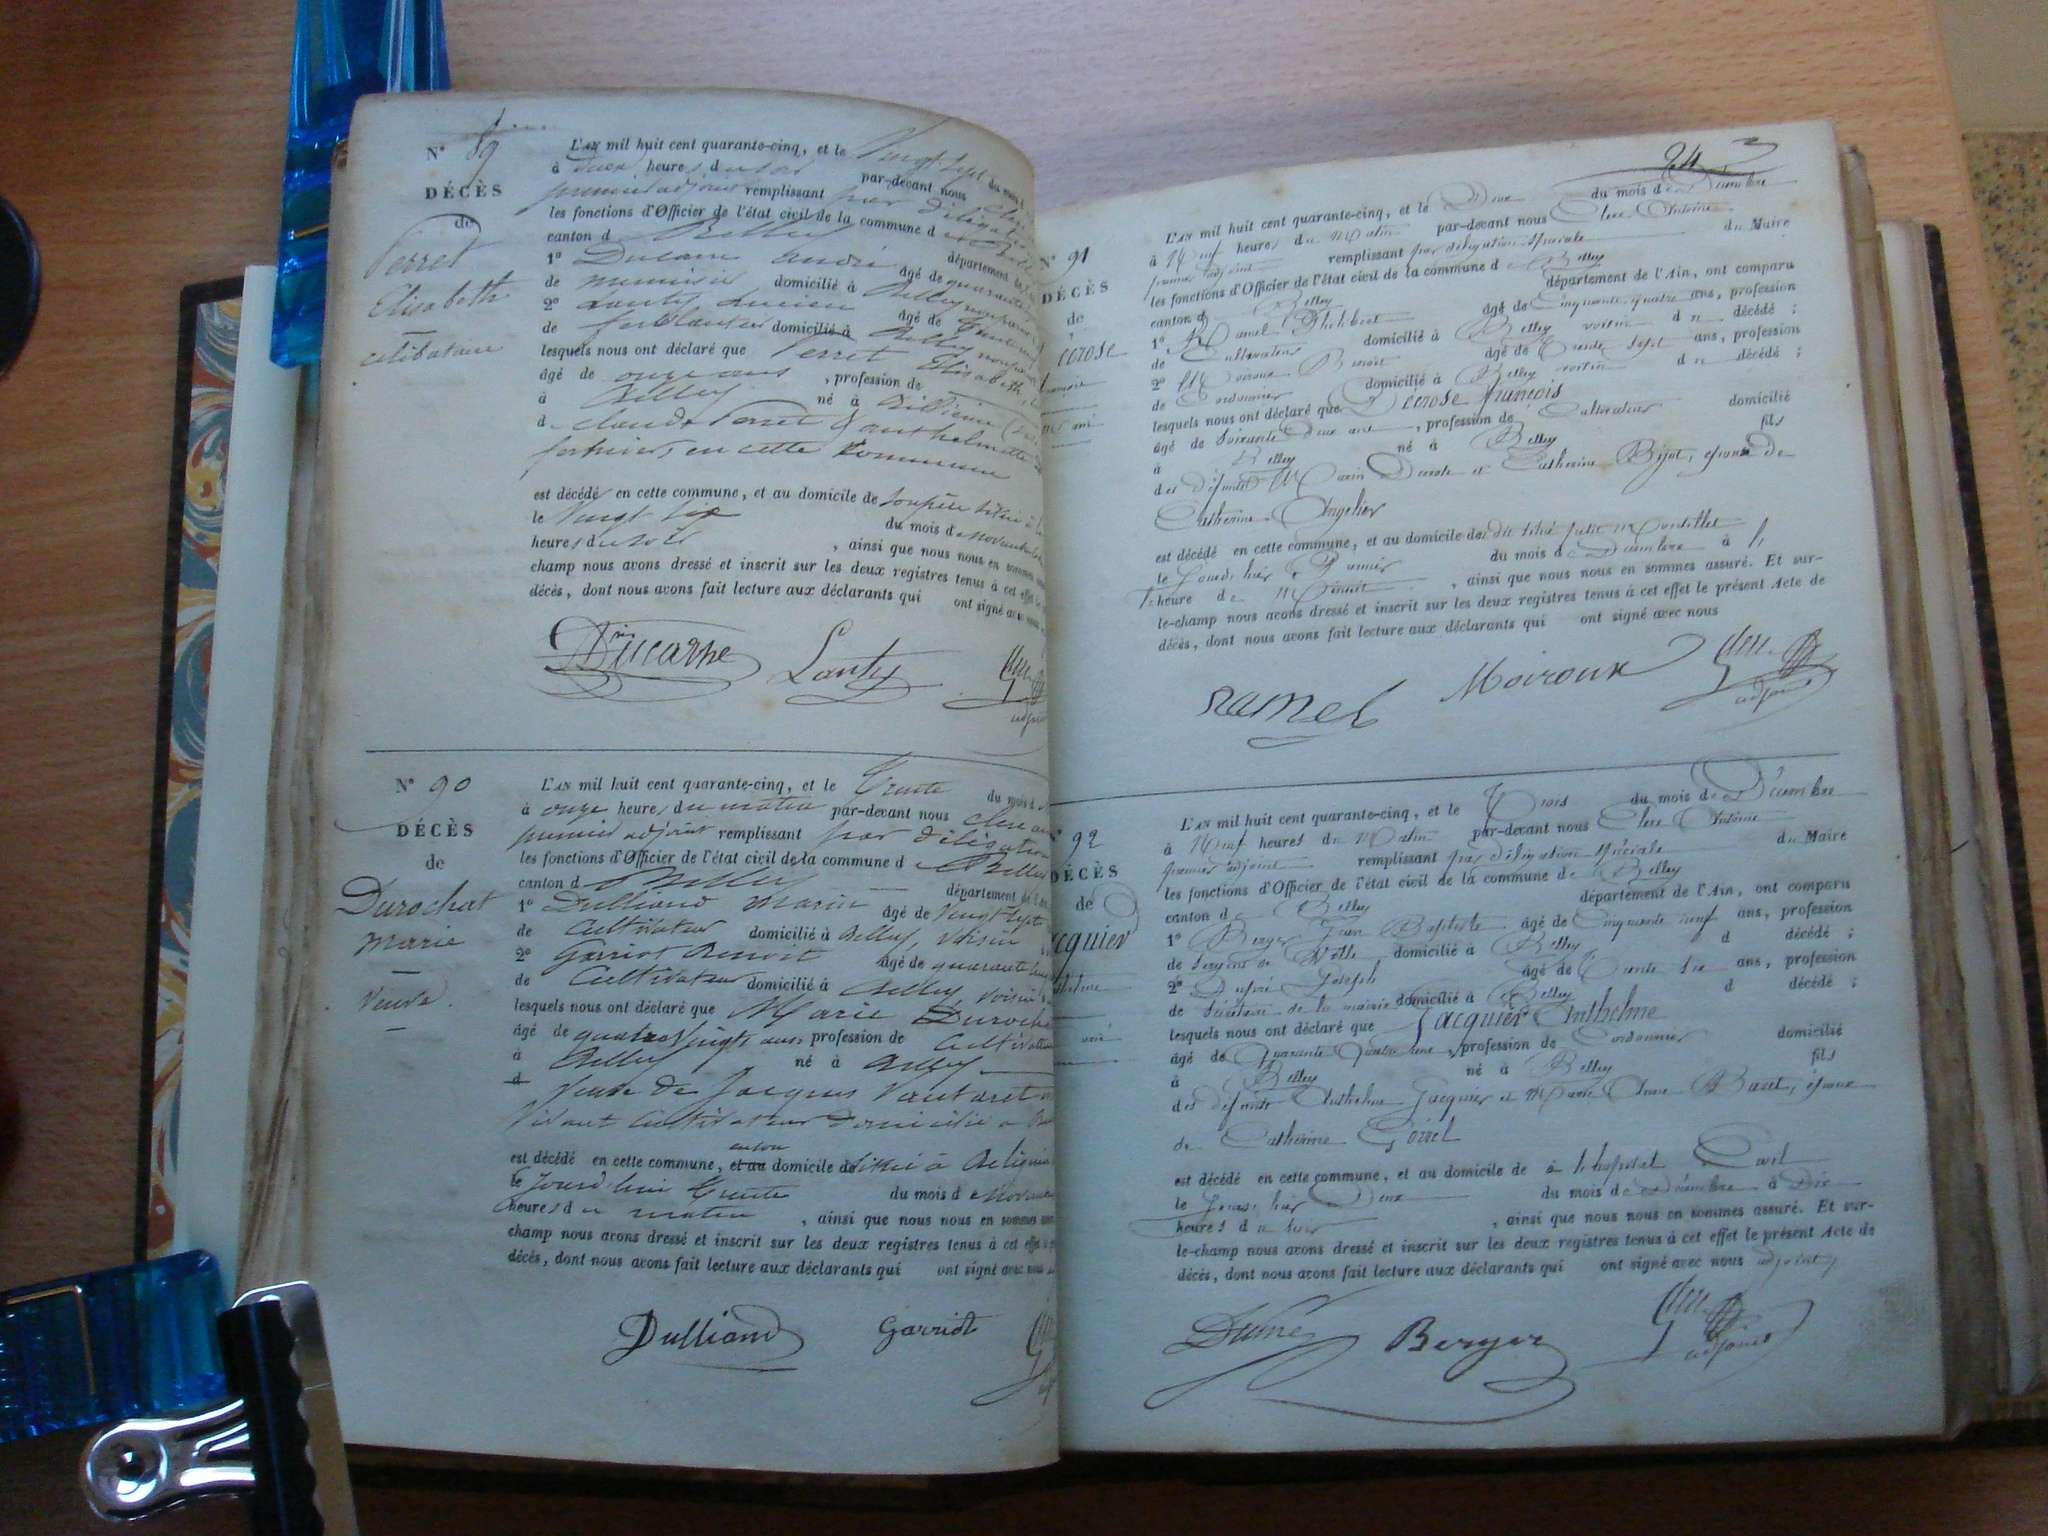 N° 89
DÉCÈS
de
Perret
Elisabeth
célibataire
L'AN mil huit cent quarante-cinq, et le Vingt sept du mois d
à deux heures du soir par-devant nous Clerc
premier adjoint remplissant par délégation
les fonctions d'Officier de l'état civil de la commune de Belley
canton d Belley département
1° Ducarre André âgé de quarante
de menuisier domicilié à Belley
2° Lanty Lucien âgé de trente
de ferblantier domicilié à Belley
lesquels nous ont déclaré que Perret Elisabeth
âgé de onze ans , profession de
à Belley né à
d. Claude Perret & anthelmette
fermiers en cette Commune
est décédé en cette commune, et au domicile de son père situé à
le Vingt six du mois de novembre
heures du soir , ainsi que nous nous en sommes
champ nous avons dressé et inscrit sur les deux registres tenus à cet effet le
décès, dont nous avons fait lecture aux déclarants qui ont signé avec nous
Ducarre Lanty Clerc
adjoint
N° 90
DÉCÈS
de
Durochat
marie
veuve
L'AN mil huit cent quarante-cinq, et le Trente du mois d
à onze heures du matin par-devant nous Clerc
premier adjoint remplissant par délégation
les fonctions d'Officier de l'état civil de la commune de Belley
canton d Belley département
1° Dulliand Marin âgé de vingt sept
de Cultivateur domicilié à Belley, voisin
2° Garriot Benoit âgé de quarante
de Cultivateur domicilié à Belley, voisin
lesquels nous ont déclaré que Marie Durochat
âgé de quatre vingts ans profession de Cultivatrice
à Belley né à Belley
d veuve de Jacques Vautaret
Vivant Cultivateur domicilié à
est décédé en cette commune, et au domicile de situé à
le jourd'hui trente du mois de novembre
heures du matin , ainsi que nous nous en sommes
champ nous avons dressé et inscrit sur les deux registres tenus à cet effet
décès, dont nous avons fait lecture aux déclarants qui ont signé avec nous
Dulliand Garriot
24
91
DÉCÈS
de
Decrose
L'AN mil huit cent quarante-cinq, et le Deux du mois de Décembre
à Neuf heures du Matin par-devant nous Clerc Antoine
premier adjoint remplissant par délégation spéciale du Maire
les fonctions d'Officier de l'état civil de la commune de Belley
canton d Belley département de l'Ain, ont comparu
1° Ramel Philibert âgé de Cinquante quatre ans, profession
de Cultivateur domicilié à Belley voisin du décédé ;
2° Moiroux Benoit âgé de Trente sept ans, profession
de Cordonnier domicilié à Belley voisin du décédé ;
lesquels nous ont déclaré que Decrose françois
âgé de Soixante Deux ans , profession de Cultivateur domicilié
à Belley né à Belley fils
des défunts Marin Decrose et Catherine Bijot, époux de
Catherine Angelier
est décédé en cette commune, et au domicile de
le Jourd. hier Premier du mois de Décembre à
heure de Minuit , ainsi que nous nous en sommes assuré. Et sur-
le-champ nous avons dressé et inscrit sur les deux registres tenus à cet effet le présent Acte de
décès, dont nous avons fait lecture aux déclarants qui ont signé avec nous
Ramel Moiroux Clerc
adjoint
92
DÉCÈS
de
Jacquier
L'AN mil huit cent quarante-cinq, et le Trois du mois de Décembre
à Neuf heures du Matin par-devant nous Clerc Antoine
premier adjoint remplissant par délégation spéciale du Maire
les fonctions d'Officier de l'état civil de la commune de Belley
canton d Belley département de l'Ain, ont comparu
1° Berger Jean Baptiste âgé de Cinquante neuf ans, profession
de Sergent de Ville domicilié à Belley d décédé ;
2° Dupré Joseph âgé de Trente six ans, profession
de Secrétaire de la mairie domicilié à Belley d décédé ;
lesquels nous ont déclaré que Jacquier Anthelme
âgé de Quarante quatre ans, profession de Cordonnier domicilié
à Belley né à Belley fils
des défunts Anthelme Jacquier et Marie Anne Baret, époux
de Catherine Gorrel
est décédé en cette commune, et au domicile de à l'hopital Civil
le Jourd. hier Deux du mois de Décembre à Dix
heures du soir , ainsi que nous nous en sommes assuré. Et sur-
le-champ nous avons dressé et inscrit sur les deux registres tenus à cet effet le présent Acte de
décès, dont nous avons fait lecture aux déclarants qui ont signé avec nous adjoint
Dupré Berger Clerc
adjoint